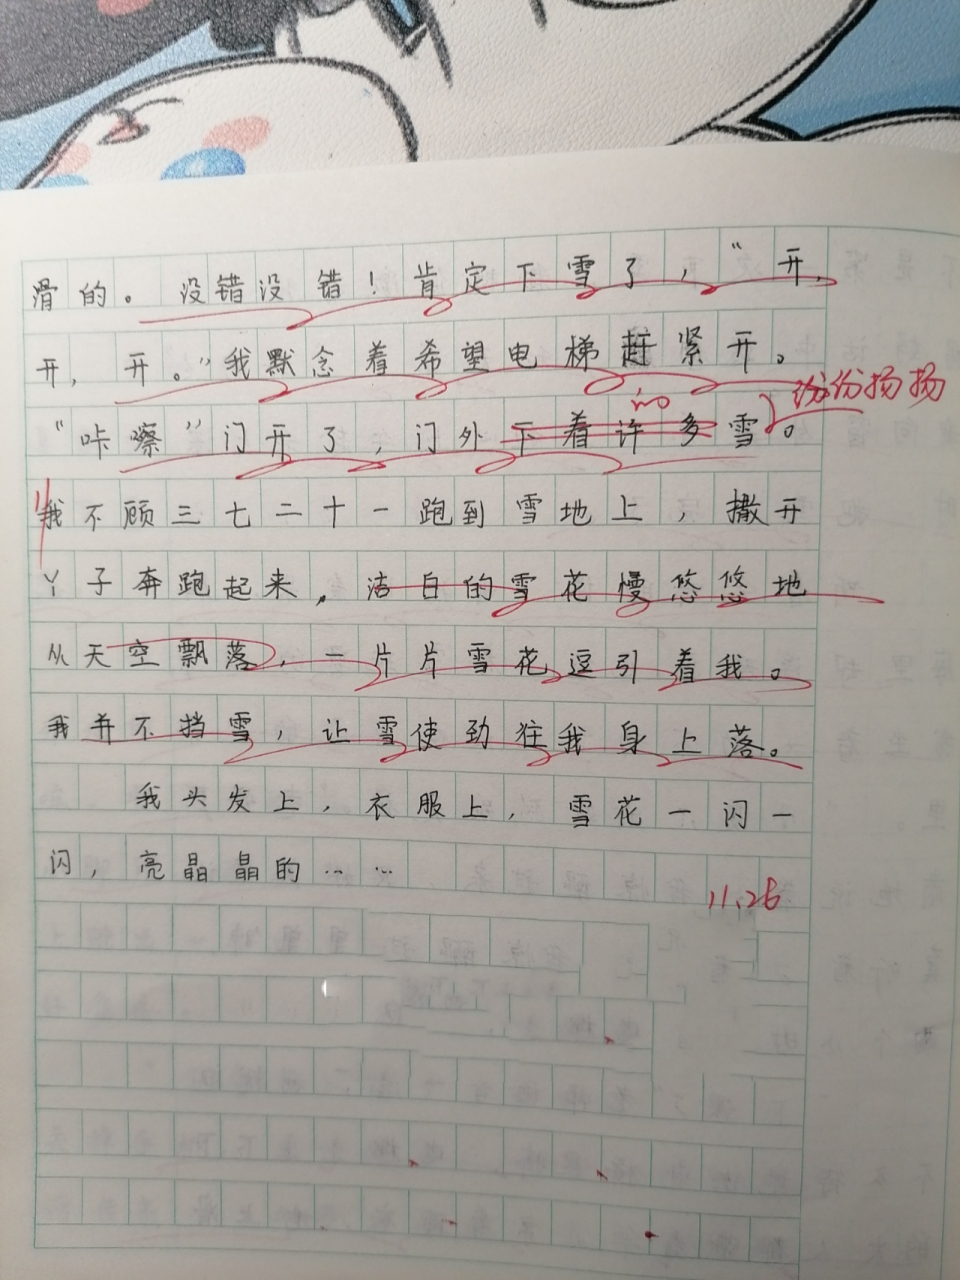 滑的。没错没错！肯定下雪了，“开，
开，开。”我默念着希望电梯赶紧开。
纷纷扬扬
的
“咔嚓”门开了，门外下着许多雪。
我不顾三七二十一跑到雪地上，撒开
丫子奔跑起来，洁白的雪花慢悠悠地
从天空飘落，一片片雪花逗引着我。
我并不挡雪，让雪使劲往我身上落。
我头发上，衣服上，雪花一闪一
闪，亮晶晶的……
11.26